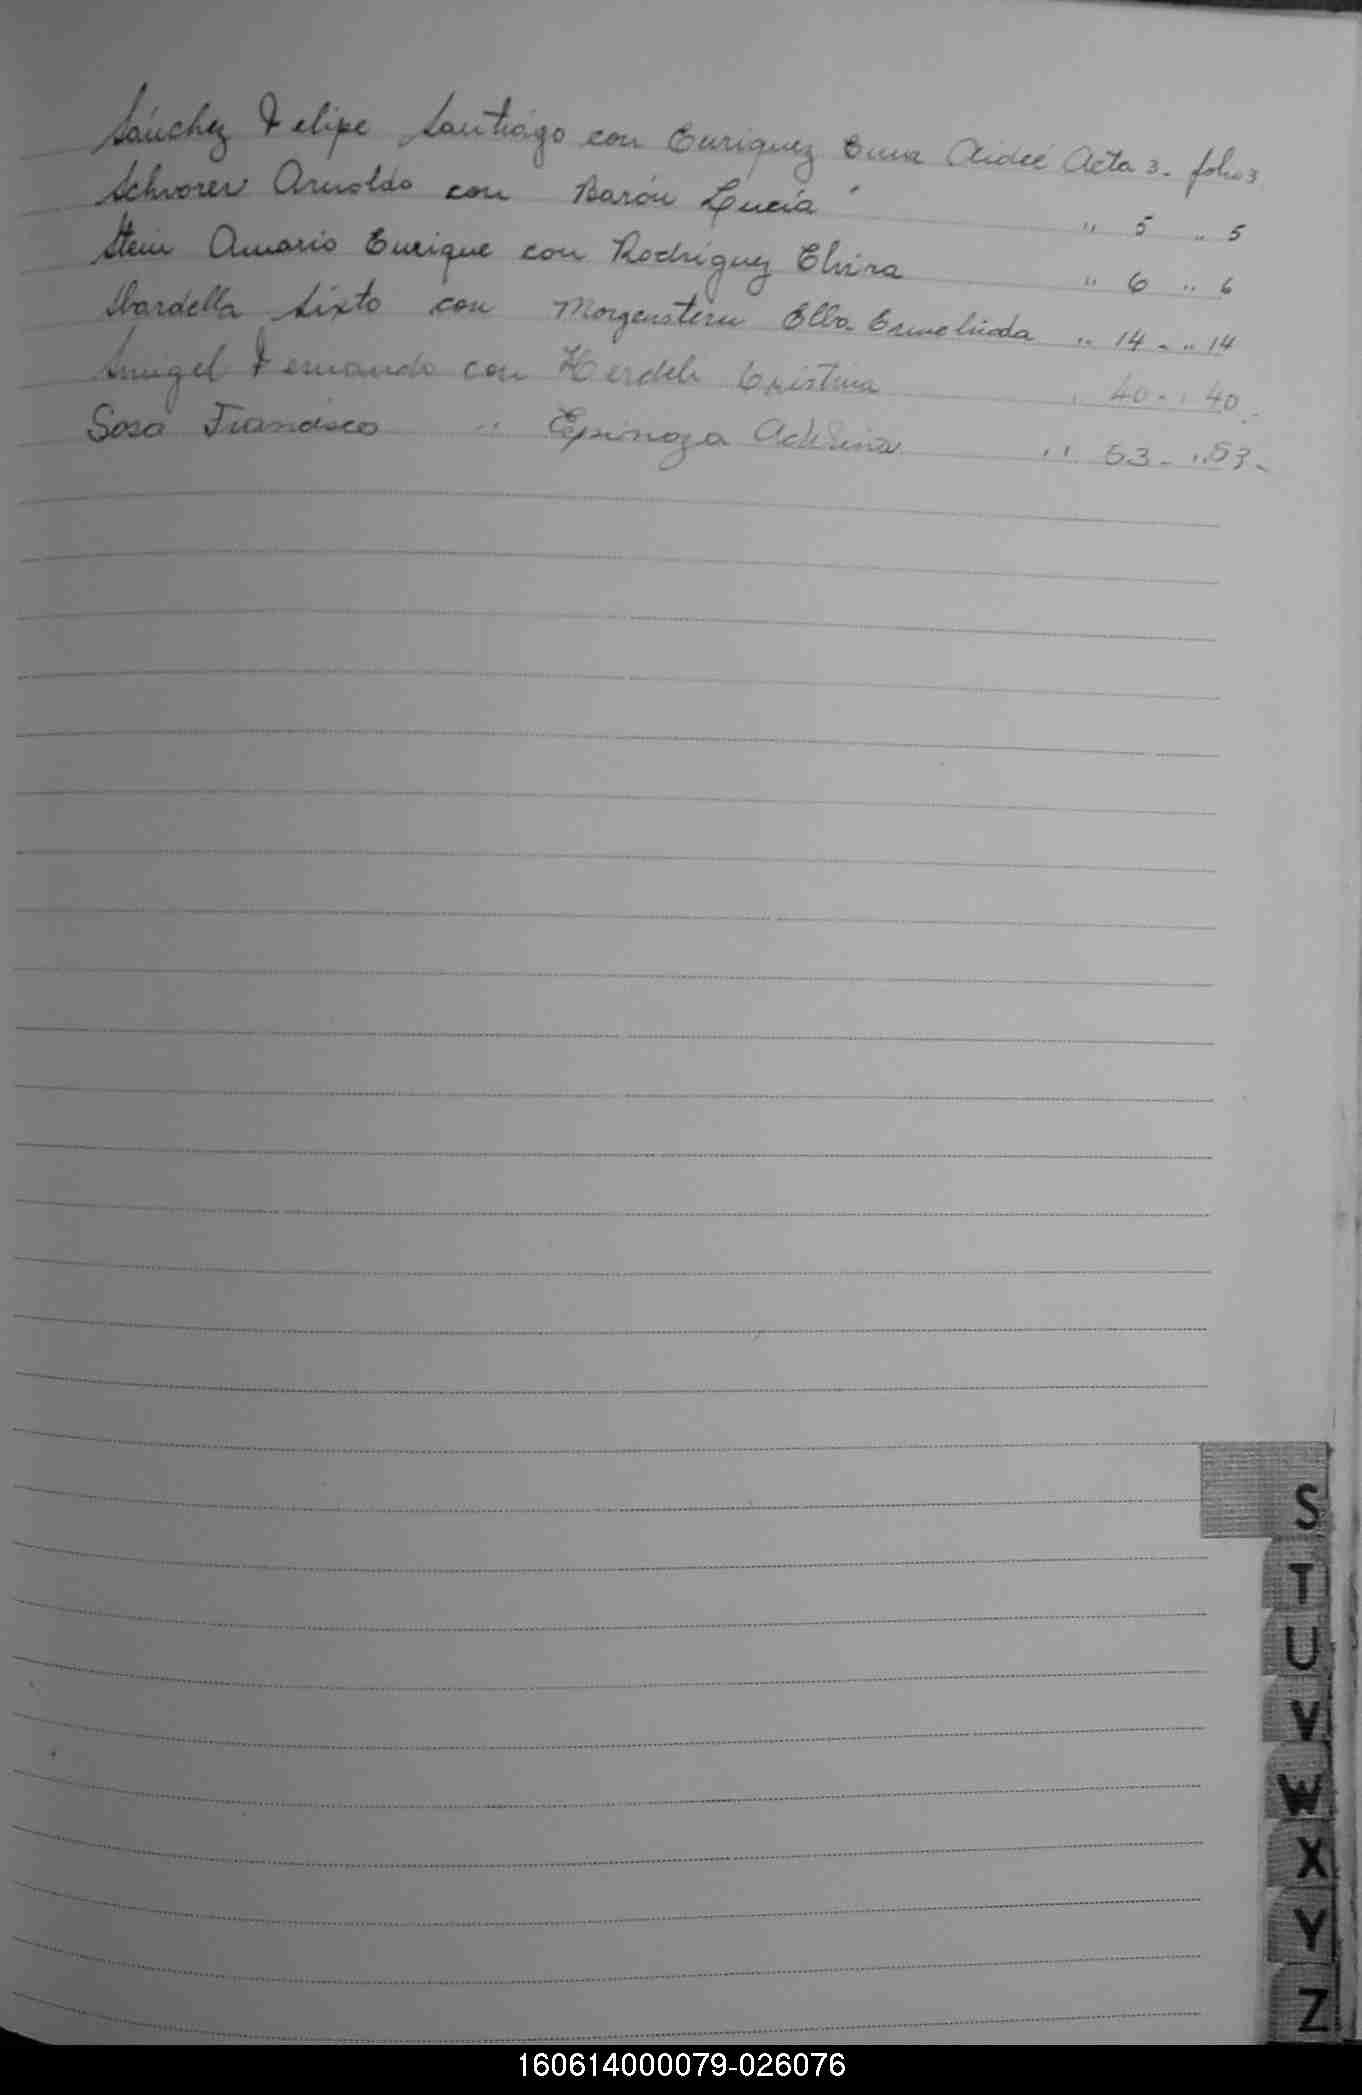 Sánchez Felipe Santiago con Enriquez Ema Aideé Acta 3. folio 3
Schvorer Arnoldo con Barón Lucía " 5 " 5
Stein Amario Enrique con Rodriguez Elvira " 6 " 6
Sbardella Sixto con Morgenstern Elba " 14 - " 14
Fernando con Cristina " 40 - " 40
Sosa Francisco " Espinoza " 53 - " 53 -
S
T
U
V
W
X
Y
Z
160614000079-026076